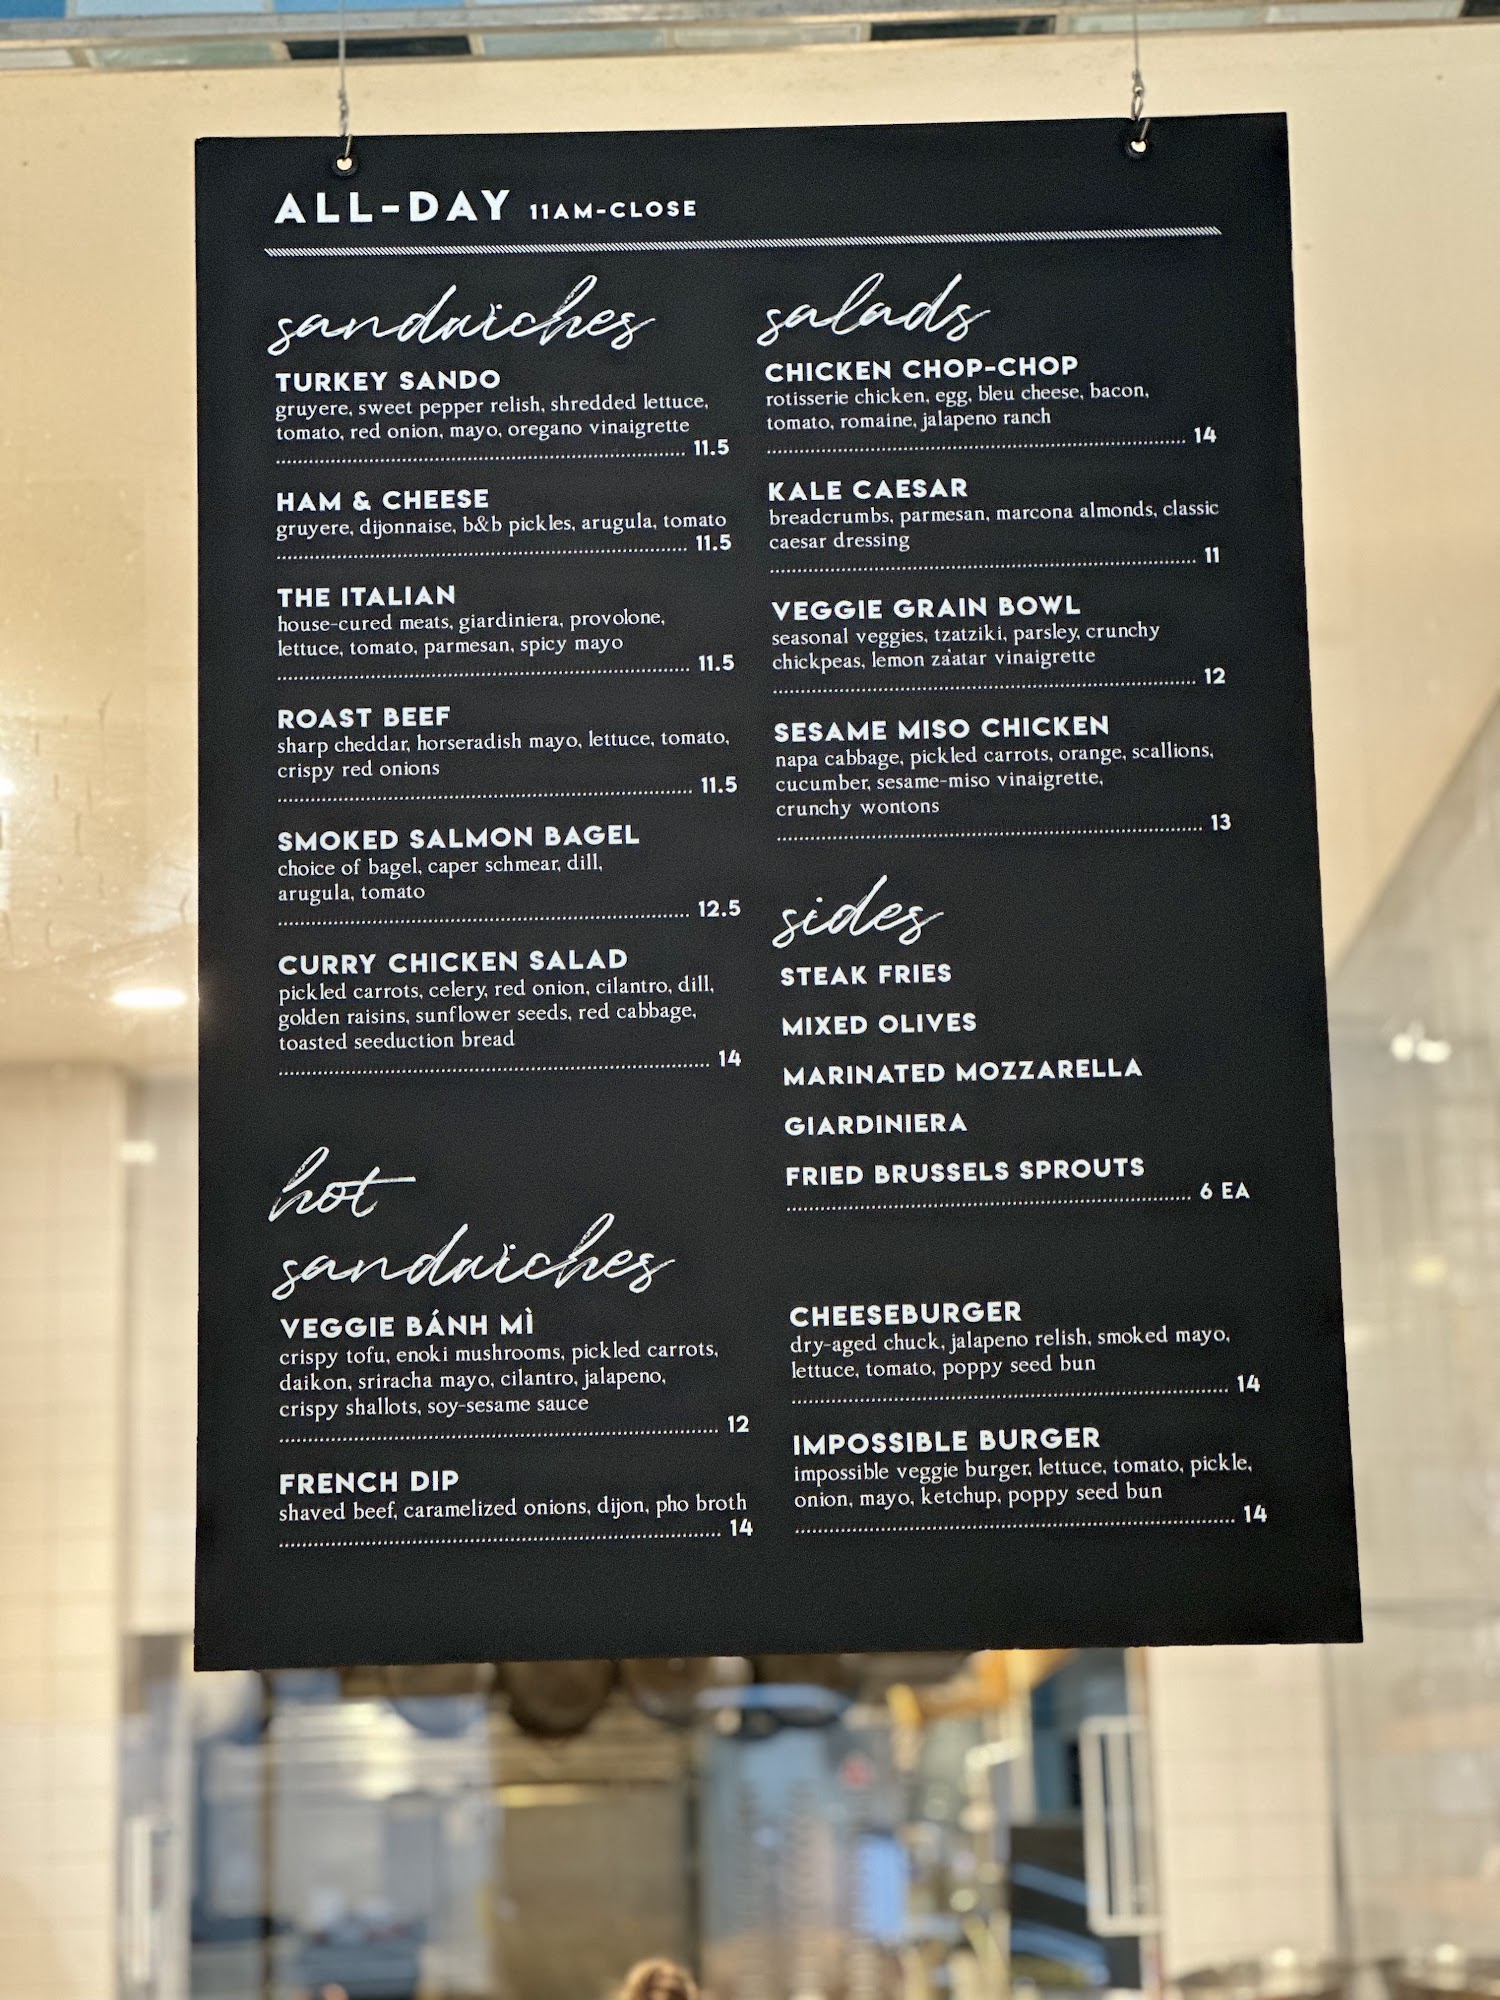 ALL-DAY 11AM-CLOSE
sandwiches
TURKEY SANDO
gruyere, sweet pepper relish, shredded lettuce,
tomato, red onion, mayo, oregano vinaigrette
11.5
HAM & CHEESE
gruyere, dijonnaise, b&b pickles, arugula, tomato
11.5
THE ITALIAN
house-cured meats, giardiniera, provolone,
lettuce, tomato, parmesan, spicy mayo
11.5
ROAST BEEF
sharp cheddar, horseradish mayo, lettuce, tomato,
crispy red onions
11.5
SMOKED SALMON BAGEL
choice of bagel, caper schmear, dill,
arugula, tomato
12.5
CURRY CHICKEN SALAD
pickled carrots, celery, red onion, cilantro, dill,
golden raisins, sunflower seeds, red cabbage,
toasted seeduction bread
14
salads
CHICKEN CHOP-CHOP
rotisserie chicken, egg, bleu cheese, bacon,
tomato, romaine, jalapeno ranch
14
KALE CAESAR
breadcrumbs, parmesan, marcona almonds, classic
caesar dressing
11
VEGGIE GRAIN BOWL
seasonal veggies, tzatziki, parsley, crunchy
chickpeas, lemon za'atar vinaigrette
12
SESAME MISO CHICKEN
napa cabbage, pickled carrots, orange, scallions,
cucumber, sesame-miso vinaigrette,
crunchy wontons
13
sides
STEAK FRIES
MIXED OLIVES
MARINATED MOZZARELLA
GIARDINIERA
FRIED BRUSSELS SPROUTS
6 EA
hot
sandwiches
VEGGIE BÁNH MÌ
crispy tofu, enoki mushrooms, pickled carrots,
daikon, sriracha mayo, cilantro, jalapeno,
crispy shallots, soy-sesame sauce
12
FRENCH DIP
shaved beef, caramelized onions, dijon, pho broth
14
CHEESEBURGER
dry-aged chuck, jalapeno relish, smoked mayo,
lettuce, tomato, poppy seed bun
14
IMPOSSIBLE BURGER
impossible veggie burger, lettuce, tomato, pickle,
onion, mayo, ketchup, poppy seed bun
14